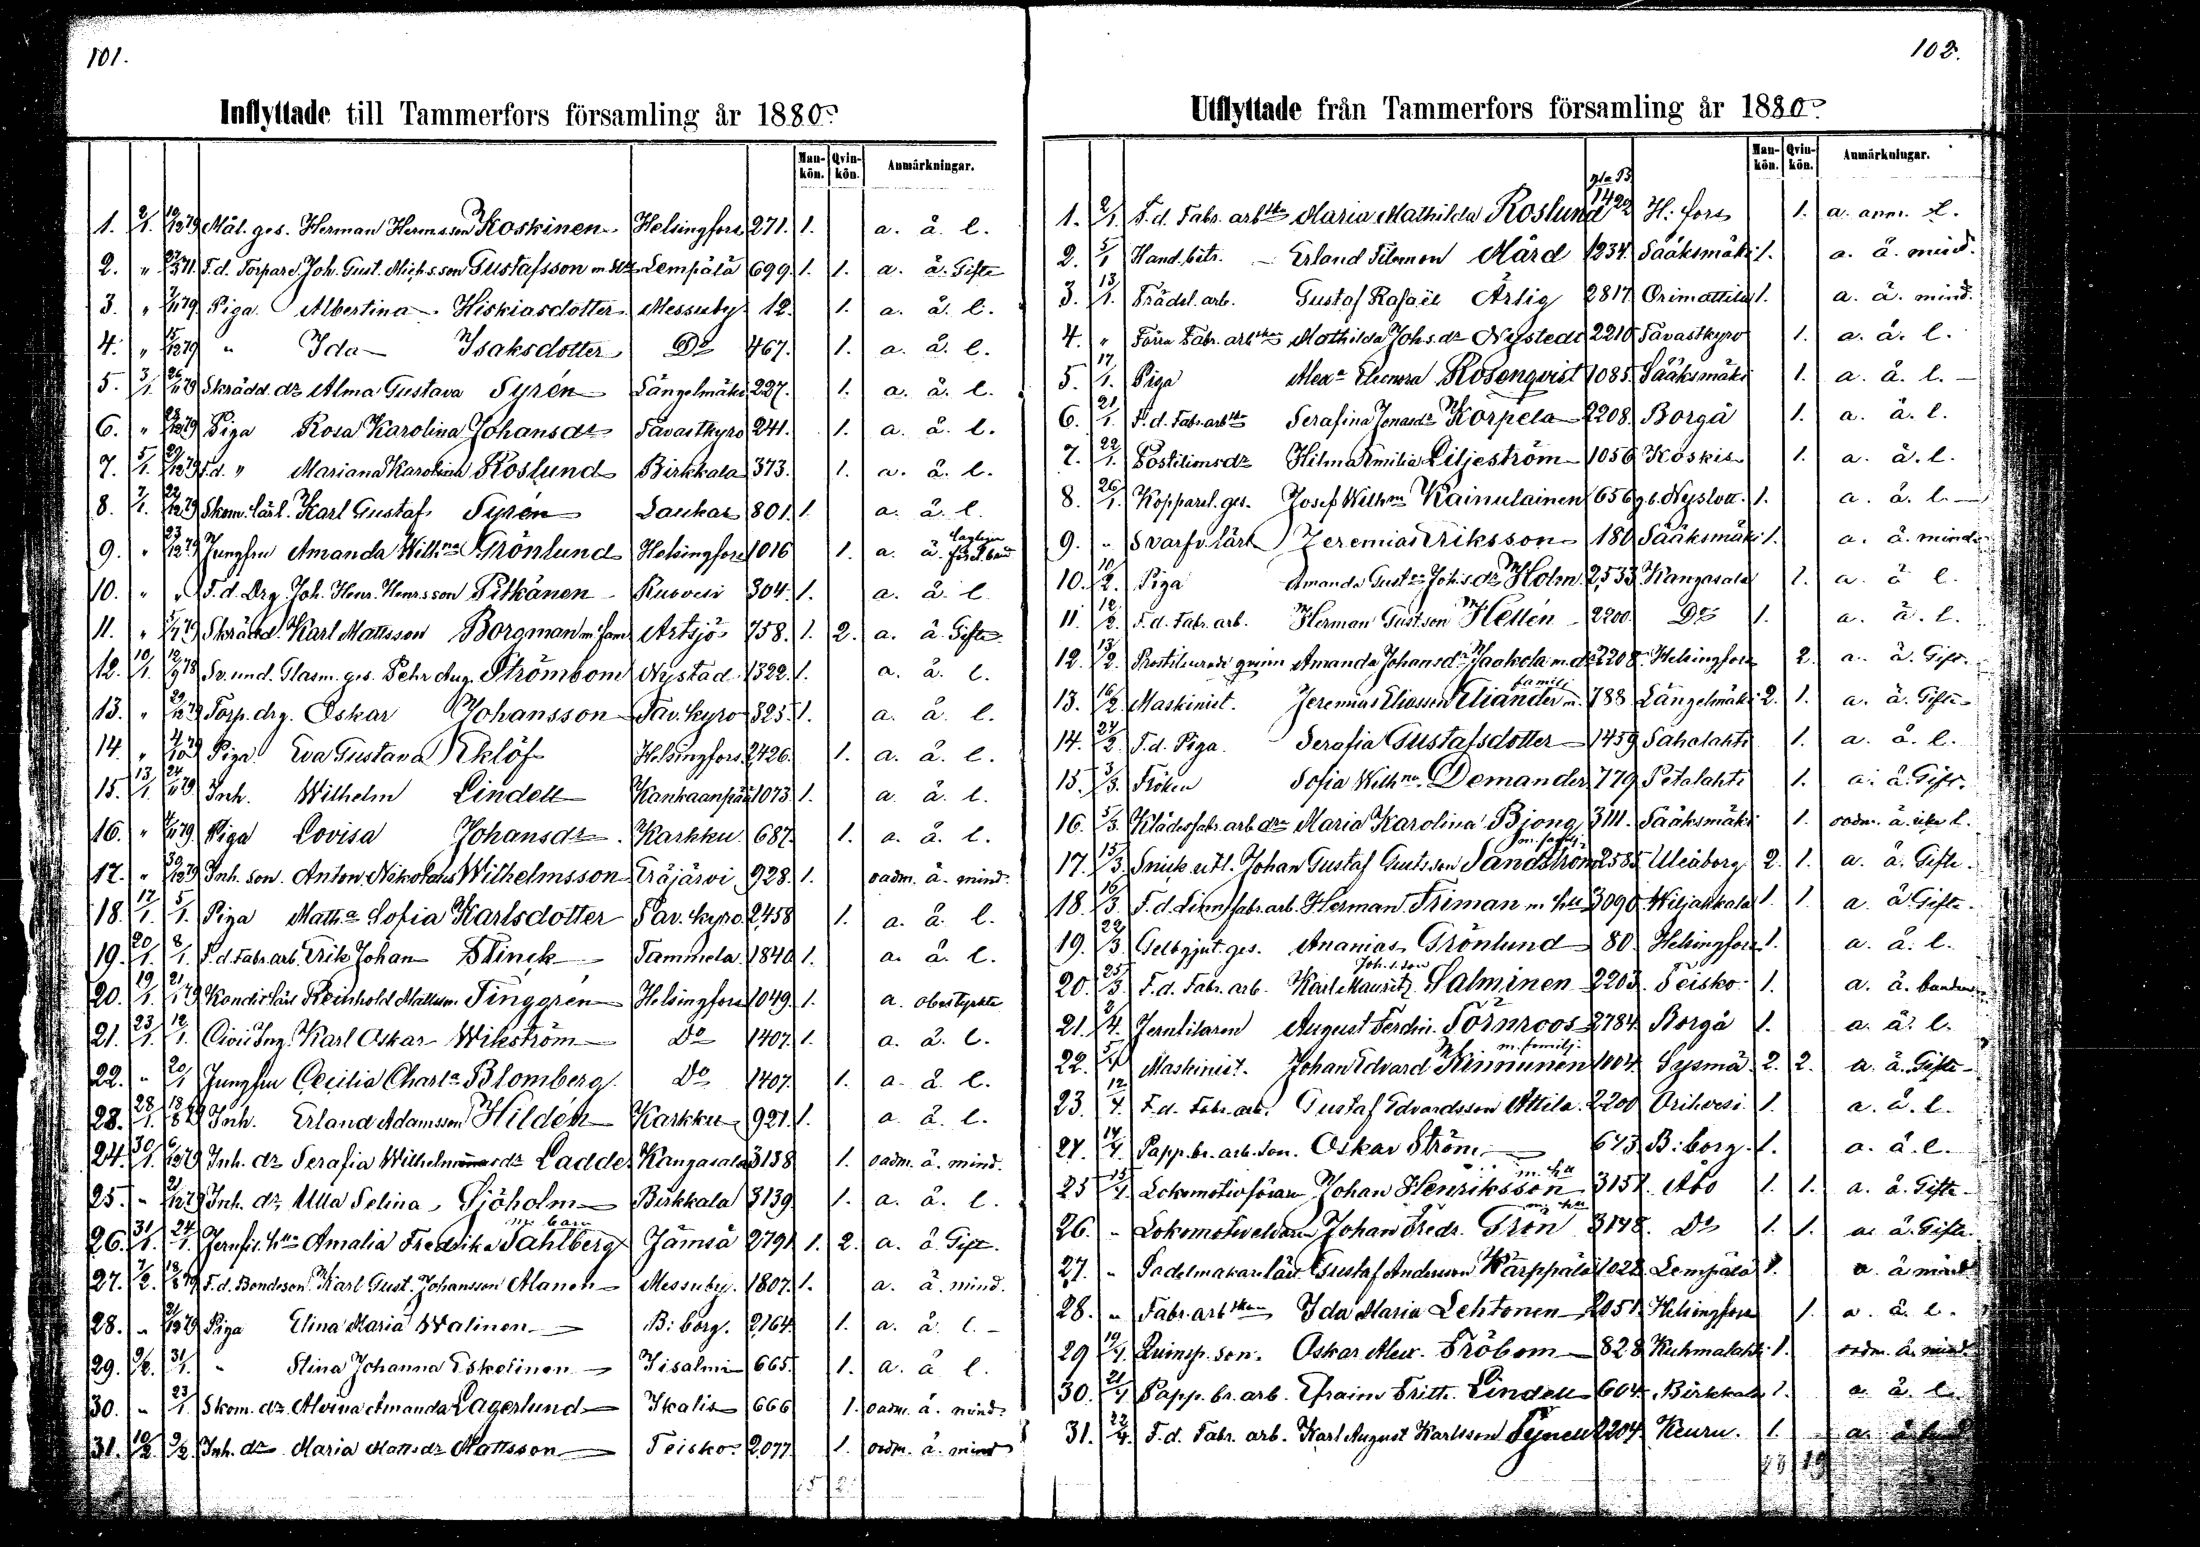 101.
Inflyttade till Tammerfors församling år 1880.
Man-kön. Qvin-kön. Anmärkningar.
1. 2/1. 19/12 79 Mål. ges. Herman Hermsson Koskinen Helsingfors 271. 1. a. å. l.
2. " 27/3 71. F.d. Torpare Joh. Gust. Mich.s.son Gustafsson m. Lempälä 699. 1. 1. a. å. Gifte
3. " 7/11 79 Piga Albertina Hiskiasdotter Messuby 12. 1. a. å. l.
4. " 15/12 79 " Ida Isaksdotter Do 467. 1. a. å. l.
5. 3/1 26/11 79 Skrädd. dr Alma Gustava Syrén Längelmäki 227. 1. a. å. l.
6. " 28/12 79 Piga Rosa Karolina Johansdr Tavastkyro 241. 1. a. å. l.
7. 5/1. 29/12 79 F.d. " Mariana Karolina Roslund Birkkala 373. 1. a. å. l.
8. 7/1. 22/12 79 Skom. lärl. Karl Gustaf Syrén Laukas 801. 1. a. å. l.
9. " 23/12 79 Jungfru Amanda Wilhna Grönlund Helsingfors 1016 1. a. å.
10. " " F.d. Drg. Joh. Henr. Henrsson Pitkänen Ruovesi 304. 1. a. å. l.
11. " 5/1 79 Skrädd. Karl Mattsson Borgman m. fam Artsjö 758. 1. 2. a. å Gifte
12. 10/1. 12/9 78 Sv. und. Glasm. ges. Pehr Aug. Strömbom Nystad 1322. 1. a. å. l.
13. " 29/12 79 Torp. drg. Oskar Johansson Tav. kyro 325. 1. a. å. l.
14. " 4/10 79 Piga Eva Gustava Eklöf Helsingfors 2426. 1. a. å. l.
15. 13/1. 24/11 79 Inh. Wilhelm Lindell Kankaanpää 1073. 1. a. å. l.
16. " 7/11 79. Piga Lovisa Johansdr Karkku 687. 1. a. å. l.
17. " 30/12 79 Inh. son. Anton Nikolaus Wilhelmsson Eräjärvi 928. 1. oadm. å. mind.
18. 17/1. 5/1. Piga Matha Sofia Karlsdotter Tav. kyro. 2458 1. a. å. l.
19. 20/1. 8/1. F.d. Fabr. arb. Erik Johan Blinck Tammela 1840 1. a. å. l.
20. 19/1. 21/1 79 Kondit. lärl. Reinhold Mattsson Tinggrén Helsingfors 1049. 1. a. obestyrkta
21. 23/1. 12/1. Civil Ing. Karl Oskar Wikström Do 1407. 1. a. å. l.
22. " 20/1 Jungfru Cecilia Charla Blomberg Do 1407. 1. a. å. l.
23. 28/1. 18/8 79 Inh. Erland Adamsson Hildén Karkku 921. 1. a. å. l.
24. 30/1. 6/12 79 Inh. dr Serafia Wilhelmsdr Ladde Kangasala 3138 1. oadm. å. mind.
25. " 21/12 79 Inh. dr Ulla Selina Sjöholm Birkkala 3139. 1. a. å. l.
26. 31/1. 24/1. Amalia Fredrika Sahlberg m. barn Jämsä 2791 1. 2. a. å Gift.
27. 7/2. 18/8 79 F.d. Bondeson Karl Gust. Johansson Alanen Messuby. 1807. 1. a. å. mind.
28. " 21/12 79 Piga Elina Maria Walinen B:borg. 2164. 1. a. å. l.
29. 9/2. 31/1. " Stina Johanna Eskelinen Iisalmi 665. 1. a. å l.
30. " 23/1. Skom. dr Alvina Amanda Lagerlund Ikalis 666 1. oadm. å. mind.
31. 10/2 9/2. Inh. dr Maria Mattsdr Mattsson Teisko 2077. 1. oadm. å. mind
102.
Utflyttade från Tammerfors församling år 1880.
Man-kön. Qvin-kön. Anmärkningar.
gla B.
1. 2/1. F.d. Fabr. arbsk Maria Mathilda Roslund 1422 H:fors 1. a. ann. l.
2. 5/1 Hand. bitr. Erland Filemon Mård 1234. Sääksmäki 1. a. å. mind.
3. 13/1. Trädsl. arb. Gustaf Rafael Ärlig 2817 Orimattila 1. a. å. mind.
4. " Förra Fabr. arbskan Mathilda Johs.dr Nystedt 2210 Tavastkyro 1. a. å. l.
5. 17/1. Piga Alexa Eleonora Rosenqvist 1085. Sääksmäki 1. a. å. l.
6. 21/1. F.d. Fabr. arbsk Serafina Jonasdr Korpela 2208. Borgå 1. a. å. l.
7. 22/1. Postilionsdr Hilma Emilia Liljeström 1056 Koskis 1. a. å. l.
8. 26/1. Kopparsl. ges. Josef Wilhm Kainulainen 656 g.b. Nyslott. 1. a. å. l.
9. " Svarfv. lärl. Jeremias Eriksson 180 Sääksmäki 1. a. å. mind.
10. 10/2. Piga Amanda Gustva Johsdr Holm 2533. Kangasala 1. a. å l.
11. 12/2. F.d. Fabr. arb. Herman Gustsson Hellén 2200. Do 1. a. å. l.
12. 13/2. Prostituerade qvinn Amanda Johansdr Jaakola m. dr 2208. Helsingfors 2. a. å. Gift.
13. 16/2. Maskinist. Jeremias Eliasson Eliander m. familj 788. Längelmäki 2. 1. a. å. Gifte
14. 24/2. F.d. Piga. Serafia Gustafsdotter 1459 Sahalahti 1. a. å. l.
15. 3/3. Fröken Sofia Wilhna. Demander 779 Petalahti 1. a. å. Gift.
16. 5/3. Klädesfabr. arb. dr Maria Karolina Bjong 3111. Sääksmäki 1. oadm. å. l.
17. 15/3. Johan Gustaf Gustsson Sandström m. familj 2585. Uleåborg 2. 1. a. å. Gifte.
18. 16/3. F.d. Linnefabr. arb. Herman Friman m. hu 3090. Wiljakkala 1. 1. a. å Gifte.
19. 22/3. Gelbgjut. ges. Ananias Grönlund 80 Helsingfors 1. a. å. l.
20. 25/3. F.d. Fabr. arb. Karl Mauritz Joh.s.son Salminen 2203. Teisko 1. a. å.
21. 2/4. Jernbilaren August Ferdin. Törnroos 2784. Borgå 1. a. å. l.
22. 5/4 Maskinist. Johan Edvard Kinnunen m. familj. 1004. Sysmä 2. 2. a. å Gifte
23. 12/4. F.d. Fabr. arb. Gustaf Edvardsson Attila. 2200 Orihvesi. 1. a. å. l.
24. 14/4. Papp. br. arb. son. Oskar Ström 643. B:borg. 1. a. å. l.
25 15/4. Lokomotivförare Johan Henriksson m. hu 3151. Åbo 1. 1. a. å. Gifte
26. " Lokomotiveldare Johan Fredr. Grön m. hu 3148. Do 1. 1. a. å. Gifte
27. " Sadelmakarelärl Gustaf Andersson Wärppälä 1028. Lempälä 1. a. å mind
28. " Fabr. arbskan Ida Maria Lehtonen 2051. Helsingfors 1. a. å. l.
29 19/4. son. Oskar Alex. Fröbom 828 Kuhmalahti 1. oadm. å. mind.
30. 21/4 Papp. br. arb. Efraim Frith. Lindell 604. Birkkala 1. a. å. l.
31. 22/4. F.d. Fabr. arb. Karl August Karlsson Tynell 2204. Keuru. 1. a. å
23 19